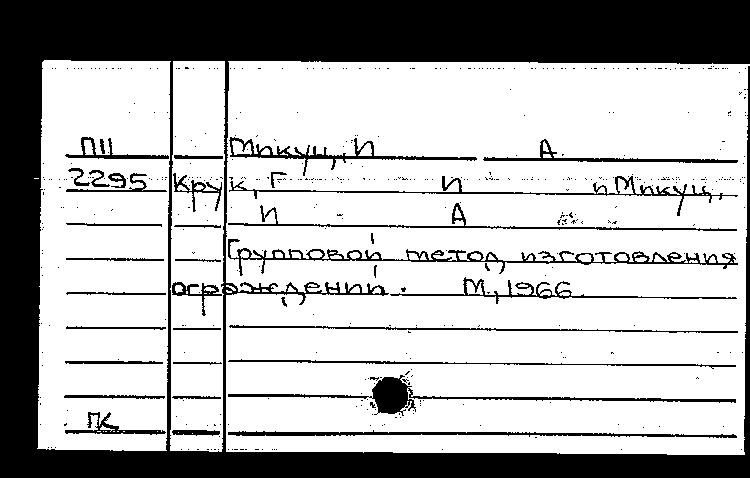 П11 Микуц, И А
2295 Крук, Г И и Микуц,
И А
Групповой метод изготовления
ограждений. М., 1966
ПК